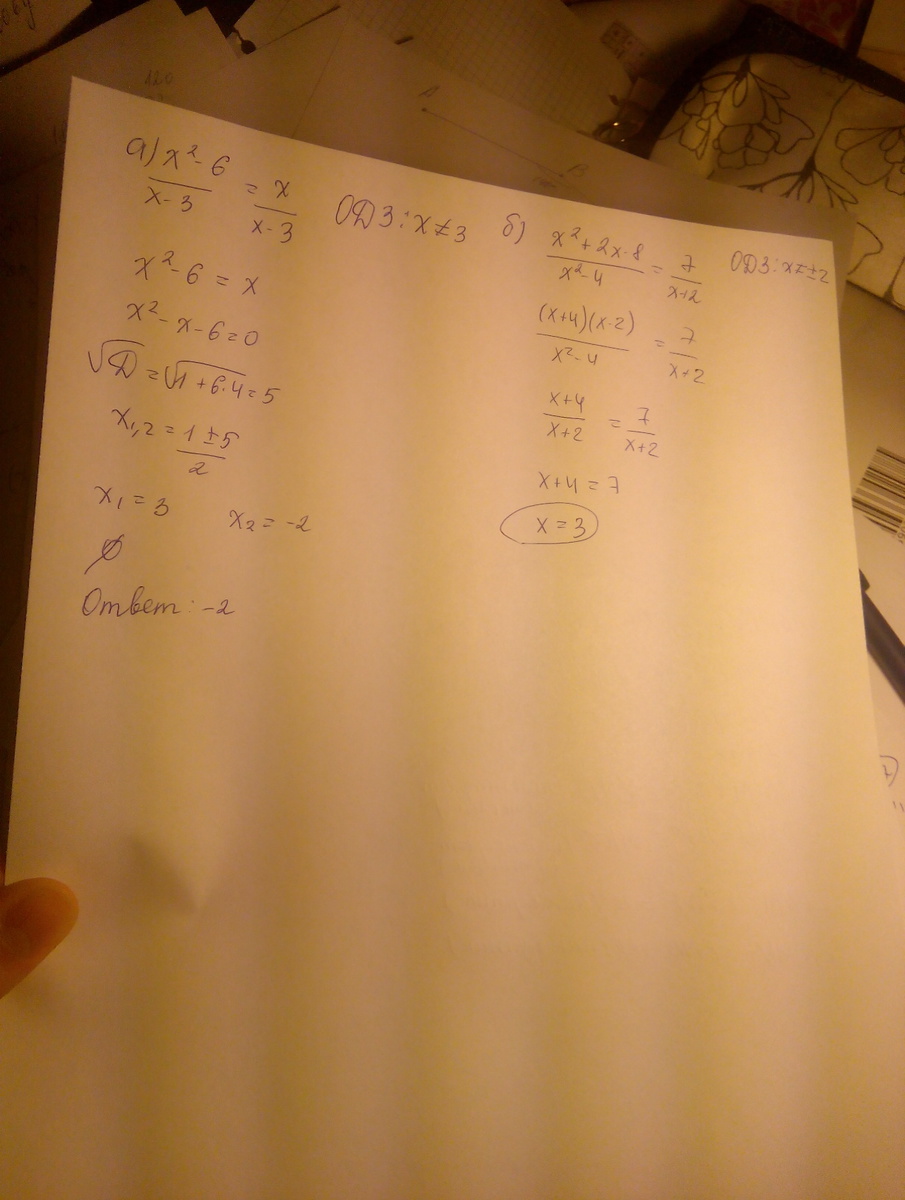 а) x² - 6 / x - 3 = x / x - 3 ОДЗ: x ≠ 3
x² - 6 = x
x² - x - 6 = 0
√D = √1 + 6·4 = 5
x₁,₂ = 1 ± 5 / 2
x₁ = 3 x₂ = -2
∅
Ответ: -2
б) x² + 2x - 8 / x² - 4 = 7 / x+2 ОДЗ: x ≠ ±2
(x+4)(x-2) / x² - 4 = 7 / x+2
x+4 / x+2 = 7 / x+2
x+4 = 7
x = 3